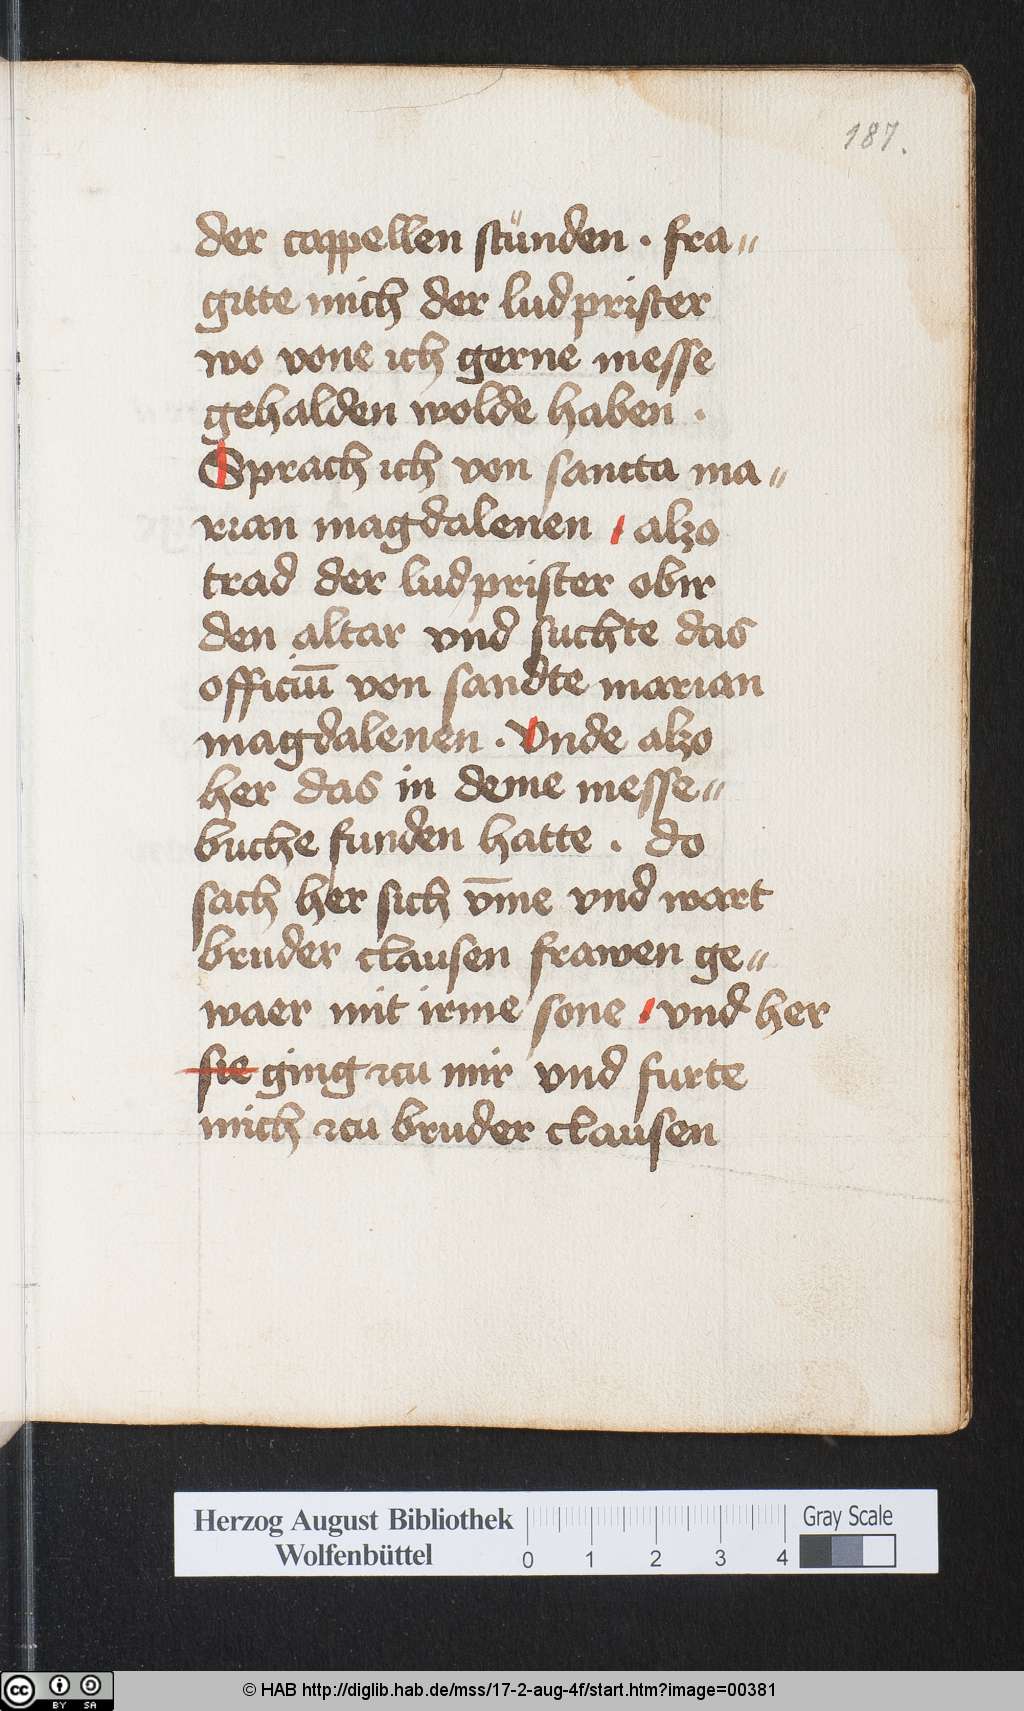 187.
der cappellen stünden · fra〃
gitte mich der ludprister
wo vone ich gerne messe
gehalden wolde haben ·
Sprach ich von sancta ma〃
rian magdalenen alzo
trad der ludprister obir
den altar vnd suchte das
officiū von sandte marian
magdalenen · Vnde alzo
her das in deme messe〃
buche funden hatte . do
sach her sich v̄me vnd wart
bruder clausen frawen ge〃
waer mit irme sone vnd her
sie ging zcu mir vnd furte
mich zcu bruder clausen
Herzog August Bibliothek
Wolfenbüttel
0 1 2 3 4
Gray Scale
cc BY SA
© HAB http://diglib.hab.de/mss/17-2-aug-4f/start.htm?image=00381